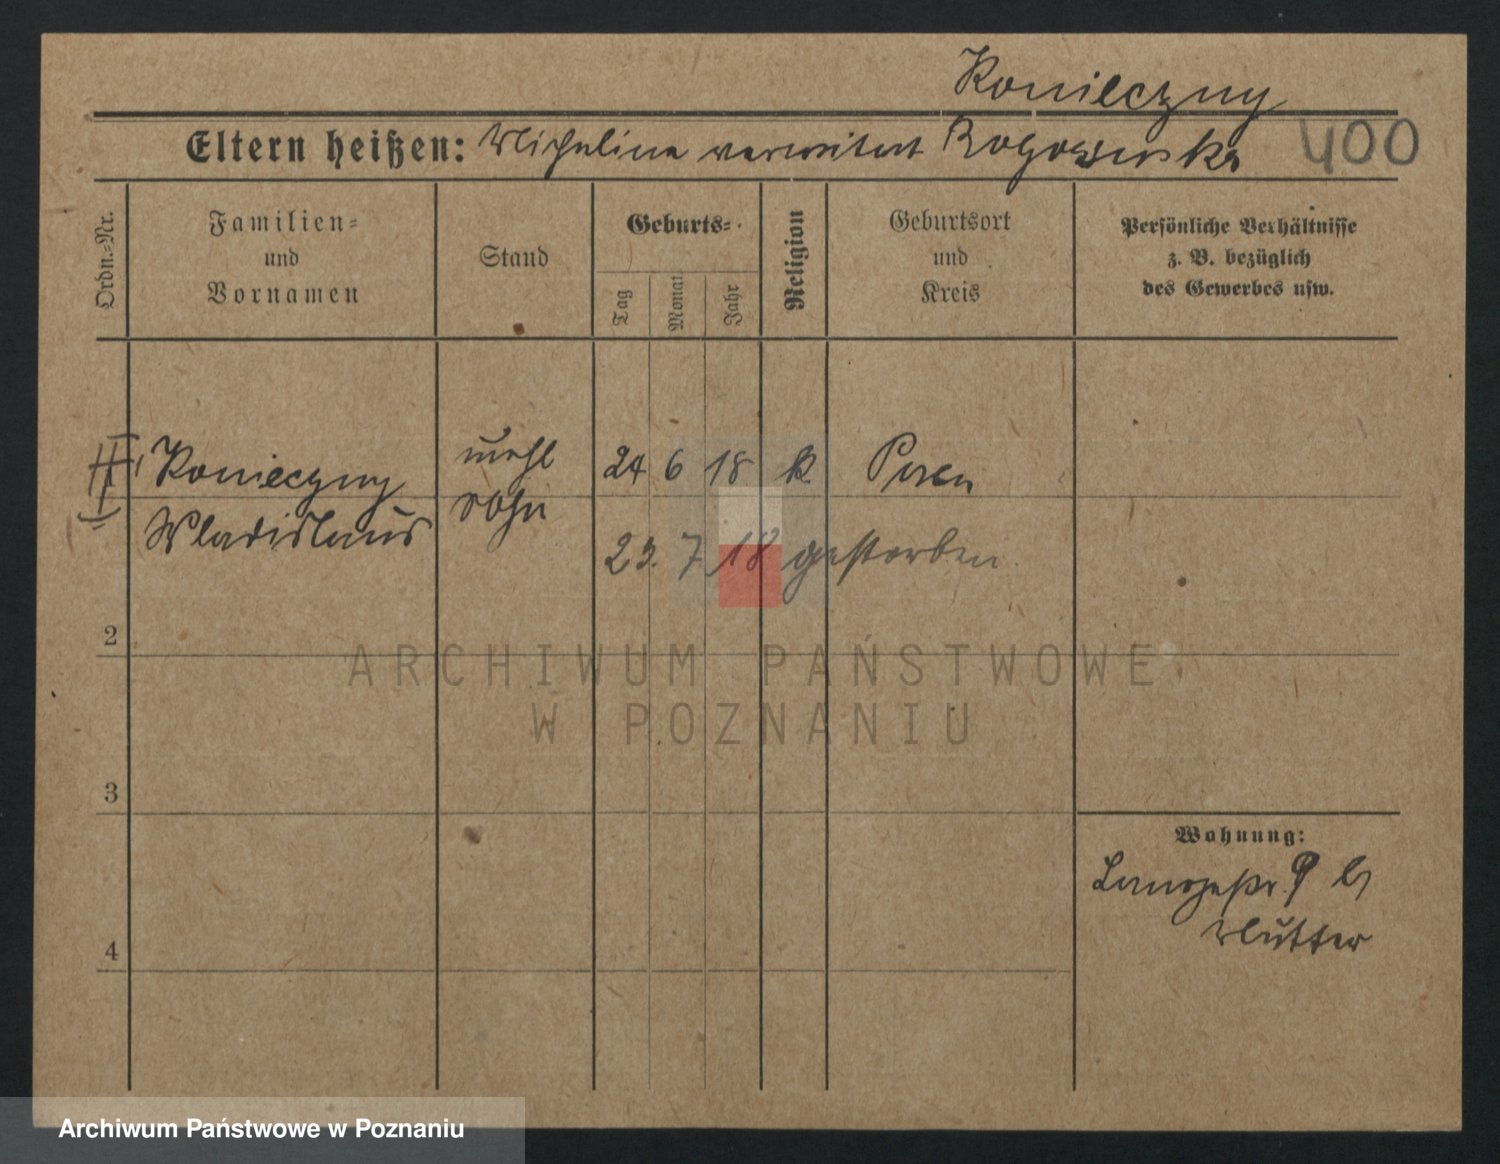 Konieczny
Eltern heißen: Michalina verwitwet Rogozinska 400
Ordn.=Nr.
Familien=
und
Vornamen
Stand
Geburts=
Tag
Monat
Jahr
Religion
Geburtsort
und
Kreis
Persönliche Verhältnisse
z. B. bezüglich
des Gewerbes usw.
Konieczny
Wladislaus
unehl
sohn
24 6 18 k. Posen
23. 7 18 gestorben.
2
3
4
Wohnung:
b/
Mutter
ARCHIWUM PAŃSTWOWE
W POZNANIU
Archiwum Państwowe w Poznaniu